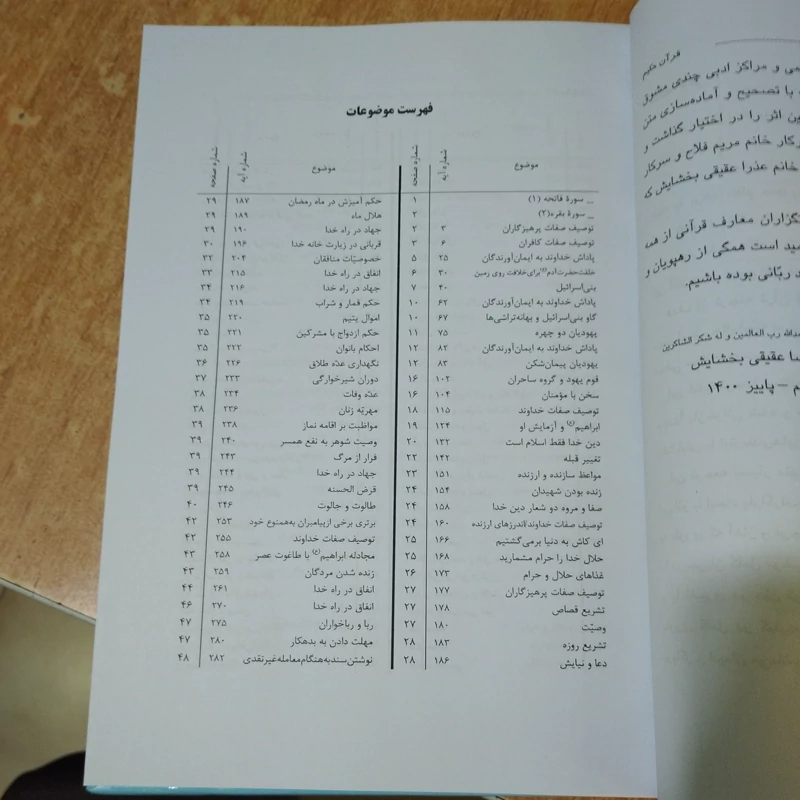 فهرست موضوعات
موضوع شماره آیه شماره صفحه
_ سورهٔ فاتحه (۱) ۱
_ سورهٔ بقره(۲) ۲
توصیف صفات پرهیزگاران ۳ ۲
توصیف صفات کافران ۶ ۳
پاداش خداوند به ایمان‌آورندگان ۲۵ ۵
خلقت حضرت آدم(ع) برای خلافت روی زمین ۳۰ ۶
بنی‌اسرائیل ۴۰ ۷
پاداش خداوند به ایمان‌آورندگان ۶۲ ۱۰
گاو بنی‌اسرائیل و بهانه‌تراشی‌ها ۶۷ ۱۰
یهودیان دو چهره ۷۵ ۱۱
پاداش خداوند به ایمان‌آورندگان ۸۲ ۱۲
یهودیان پیمان‌شکن ۸۳ ۱۲
قوم یهود و گروه ساحران ۱۰۲ ۱۶
سخن با مؤمنان ۱۰۴ ۱۶
توصیف صفات خداوند ۱۱۵ ۱۸
ابراهیم(ع) و آزمایش او ۱۲۴ ۱۹
دین خدا فقط اسلام است ۱۳۲ ۲۰
تغییر قبله ۱۴۲ ۲۲
مواعظ سازنده و ارزنده ۱۵۱ ۲۳
زنده بودن شهیدان ۱۵۴ ۲۴
صفا و مروه دو شعار دین خدا ۱۵۸ ۲۴
توصیف صفات خداوند/اندرزهای ارزنده ۱۶۰ ۲۴
ای کاش به دنیا برمی‌گشتیم ۱۶۶ ۲۵
حلال خدا را حرام مشمارید ۱۶۸ ۲۵
غذاهای حلال و حرام ۱۷۳ ۲۶
توصیف صفات پرهیزگاران ۱۷۷ ۲۷
تشریع قصاص ۱۷۸ ۲۷
وصیّت ۱۸۰ ۲۷
تشریع روزه ۱۸۳ ۲۸
دعا و نیایش ۱۸۶ ۲۸
موضوع شماره آیه شماره صفحه
حکم آمیزش در ماه رمضان ۱۸۷ ۲۹
هلال ماه ۱۸۹ ۲۹
جهاد در راه خدا ۱۹۰ ۲۹
قربانی در زیارت خانه خدا ۱۹۶ ۳۰
خصوصیّات منافقان ۲۰۴ ۳۲
انفاق در راه خدا ۲۱۵ ۳۳
جهاد در راه خدا ۲۱۶ ۳۴
حکم قمار و شراب ۲۱۹ ۳۴
اموال یتیم ۲۲۰ ۳۵
حکم ازدواج با مشرکین ۲۲۱ ۳۵
احکام بانوان ۲۲۲ ۳۵
نگهداری عدّه طلاق ۲۲۶ ۳۶
دوران شیرخوارگی ۲۳۳ ۳۷
عدّه وفات ۲۳۴ ۳۸
مهریّه زنان ۲۳۶ ۳۸
مواظبت بر اقامه نماز ۲۳۸ ۳۹
وصیت شوهر به نفع همسر ۲۴۰ ۳۹
فرار از مرگ ۲۴۳ ۳۹
جهاد در راه خدا ۲۴۴ ۳۹
قرض الحسنه ۲۴۵ ۳۹
طالوت و جالوت ۲۴۶ ۴۰
برتری برخی از پیامبران به‌همنوع خود ۲۵۳ ۴۲
توصیف صفات خداوند ۲۵۵ ۴۲
مجادله ابراهیم(ع) با طاغوت عصر ۲۵۸ ۴۳
زنده شدن مردگان ۲۵۹ ۴۳
انفاق در راه خدا ۲۶۱ ۴۴
انفاق در راه خدا ۲۷۰ ۴۶
ربا و رباخواران ۲۷۵ ۴۷
مهلت دادن به بدهکار ۲۸۰ ۴۷
نوشتن سند به هنگام معامله غیر نقدی ۲۸۲ ۴۸
قرآن حکیم
و مراکز ادبی چندی مشوق
با تصحیح و آماده‌سازی متن
این اثر را در اختیار گذاشت و
سرکار خانم مریم فلاح و سرکار
خانم عذرا عقیقی بخشایش که
معارف قرآنی از
امید است همگی از رهپویان و
ربّانی بوده باشیم.
رب العالمین و له شکر الشاکرین
عقیقی بخشایش
– پاییز ۱۴۰۰